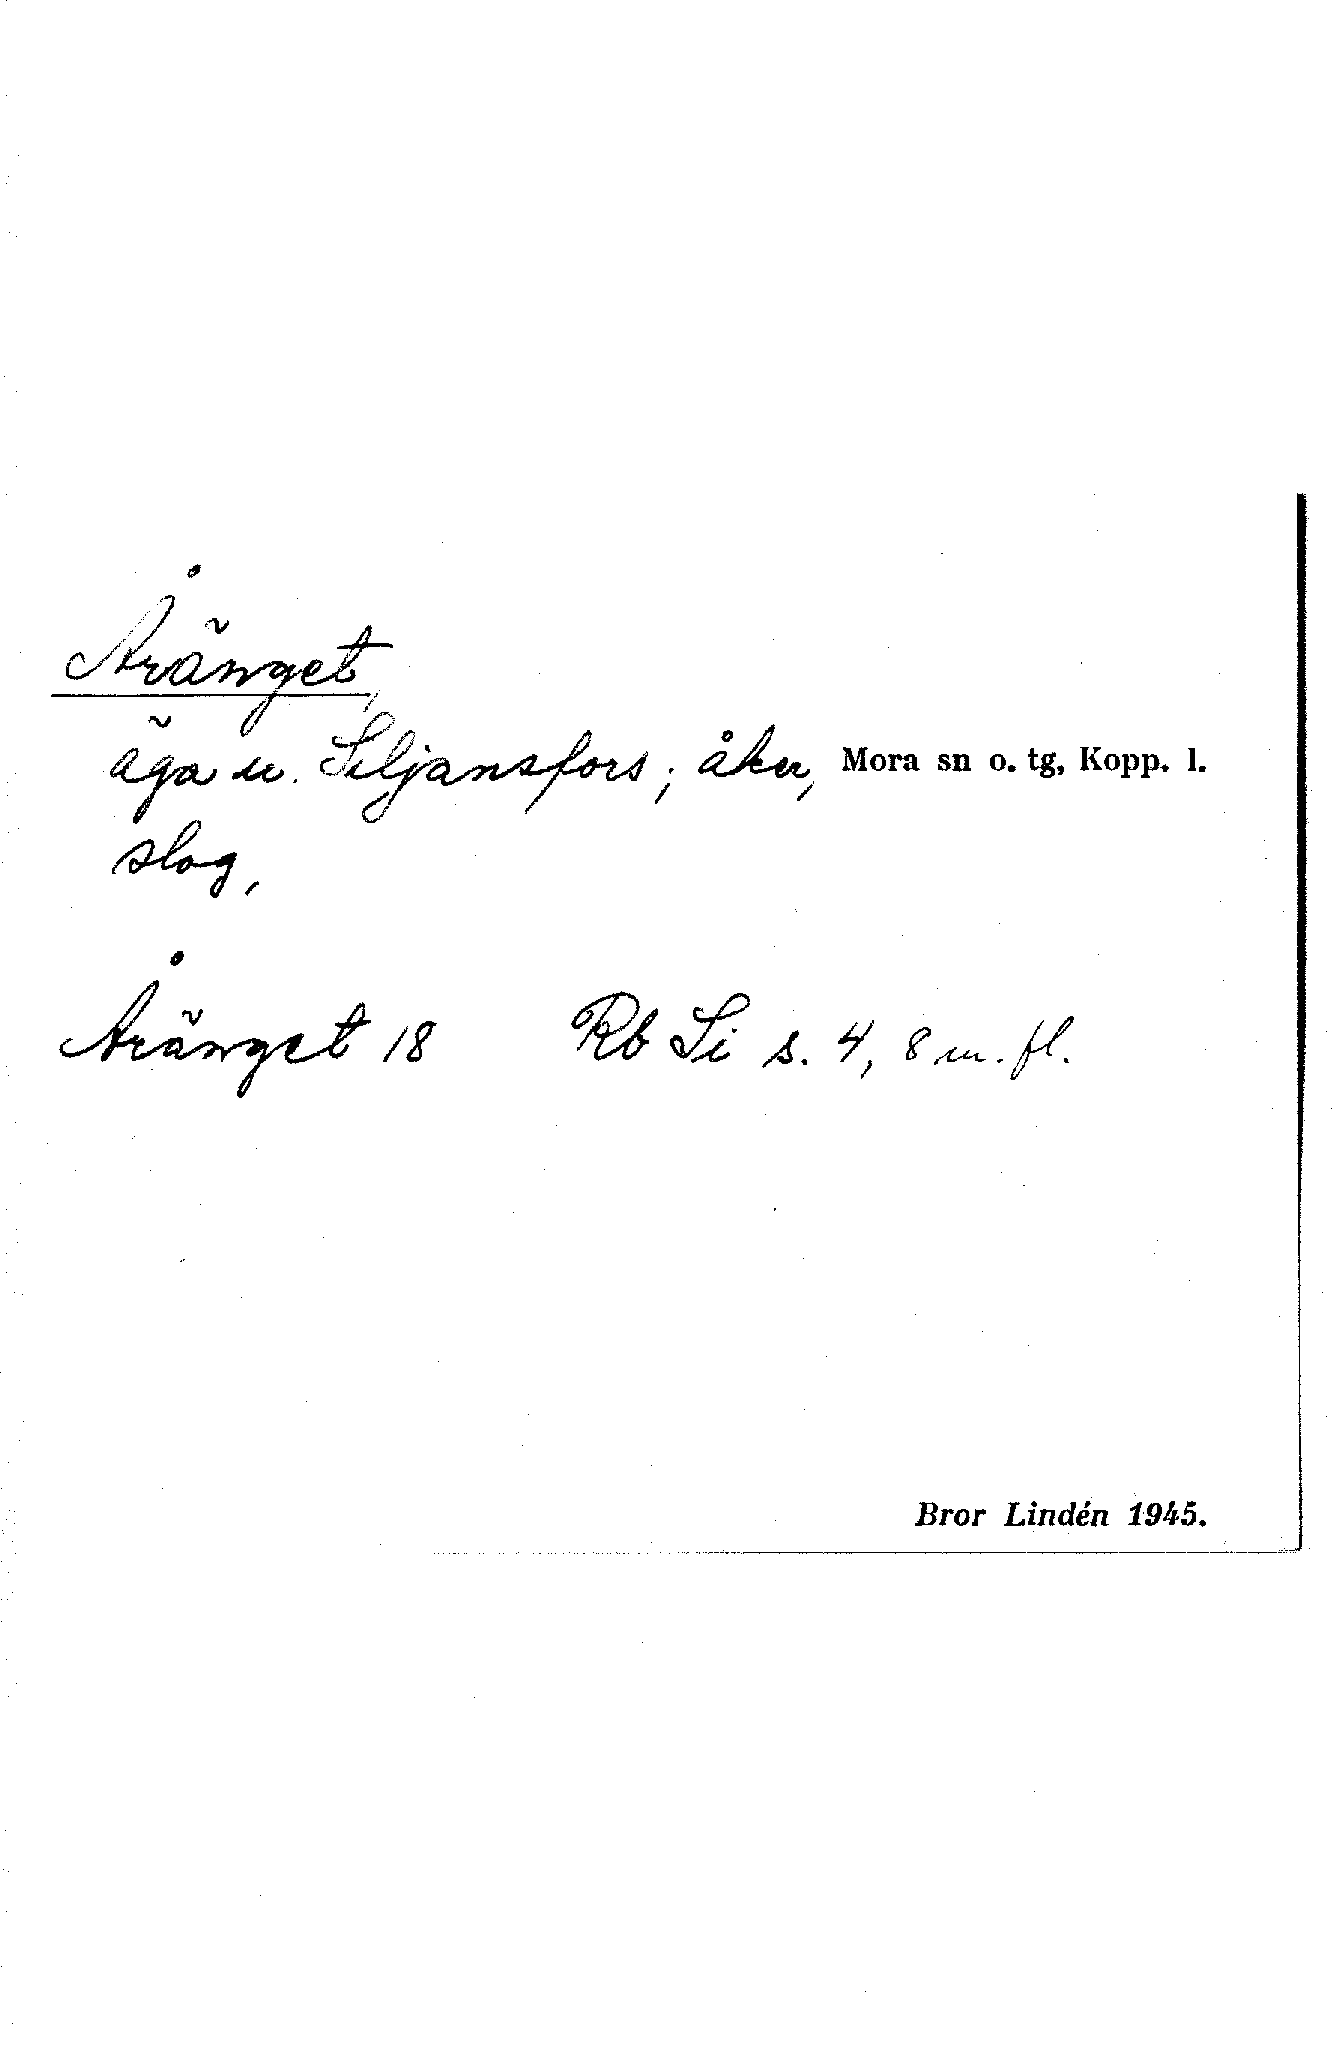 Åränget,
äga u. Siljansfors; åker, Mora sn o. tg, Kopp. l.
slog,
Åränget 18 Rb Si s. 4, 8 m. fl.
Bror Lindén 1945.